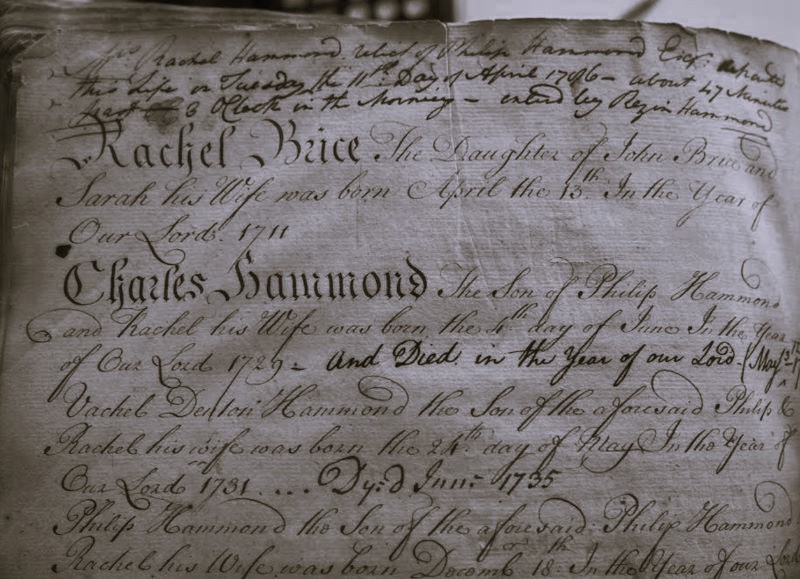 Mrs Rachel Hammond relict of Philip Hammond Esqr. departed
this Life on Tuesday the 11th Day of April 1786 - about 47 Minutes
past 3 O'Clock in the Morning - enterd by Rezin Hammond
Rachel Brice The Daughter of John Brice and
Sarah his Wife was born April the 13th In the Year of
Our Lord. 1711
Charles Hammond The Son of Philip Hammond
and Rachel his Wife was born the 4th day of June In the Year
of Our Lord 1729 - and Died in the Year of our Lord (May
Vachel Denton Hammond the Son of the aforesaid Philip &
Rachel his wife was born the 24th day of May In the Year of
Our Lord 1731 ... Dy'd June 1735
Philip Hammond the Son of the aforesaid Philip Hammond
Rachel his Wife was born Decembr 18th In the Year of our Lord